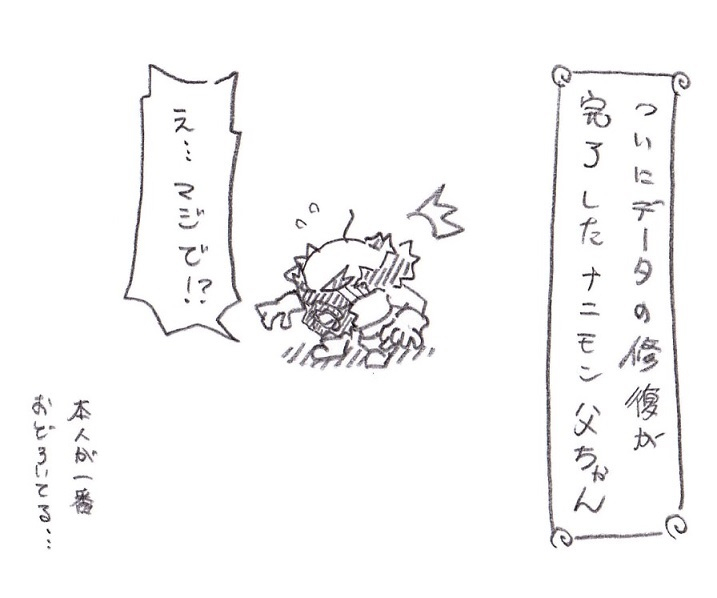 ついにデータの修復が
完了したナニモン父ちゃん
え…マジで!?
本人が一番
おどろいてる…